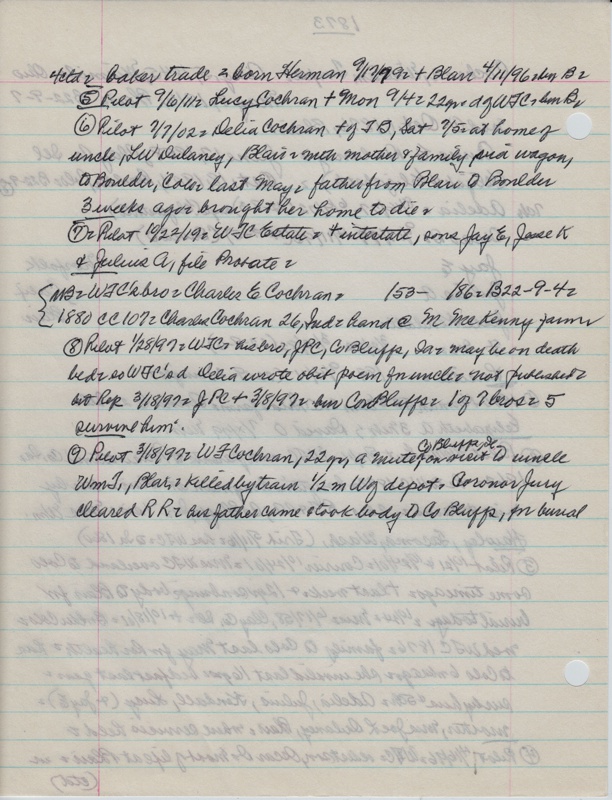 1873
4ctd = baker trade = born Herman 9/17/79 = + Blair 4/11/96 = bur B =
⑤ Pilot 9/6/11 = Lucy Cochran + Mon 9/4 = 22yr = d of WTC = bur B =
⑥ Pilot 7/7/02 = Delia Cochran + of TB, Sat 7/5 = at home of
uncle, LW Dulaney, Blair = with mother & family, via wagon,
to Boulder, Color last May = father from Blair to Boulder
3 weeks ago = brought her home to die =
⑦ = Pilot 10/22/19 = WTC Estate = + intestate, sons Jay E, Jesse K
& Julius A, file Probate =
NB = WTC's bro = Charles E Cochran = 153- 186 = B22-9-4 =
1880 cc 107 = Charles Cochran 26, Ind = hand @ M McKenny farm =
⑧ Pilot 1/28/97 = WTC = his bro, JPC, Co Bluffs, Ia = may be on death
bed = so WTC's d Delia wrote obit poem for uncle = not published =
but Rep 3/18/97 = JPC + 3/8/97 = bur Con Bluffs = 1 of 7 bros = 5
survive him =
⑨ Pilot 3/18/97 = WF Cochran, 22yr, a mute from Co Bluffs, Ia on visit to uncle
Wm T, Blair, = killed by train 1/2 m W of depot = Coronor Jury
cleared RR = his father came & took body to Co Bluffs, for burial
(ctd)